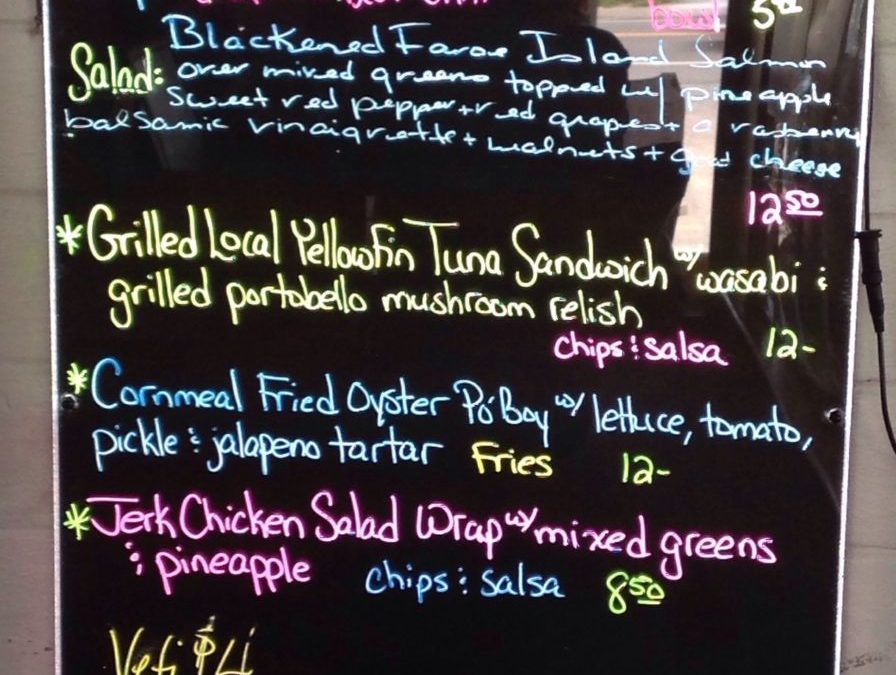 bowl 5
Blackened Faroe Island Salmon
Salad: over mixed greens topped w/ pineapple
sweet red pepper + red grapes + a rasberry
balsamic vinaigrette + walnuts + goat cheese
12 50
*Grilled Local Yellowfin Tuna Sandwich w/ wasabi &
grilled portobello mushroom relish
chips & salsa 12-
*Cornmeal Fried Oyster Po'Boy w/ lettuce, tomato,
pickle & jalapeno tartar Fries 12-
*Jerk Chicken Salad Wrap w/ mixed greens
& pineapple chips & salsa 8 50